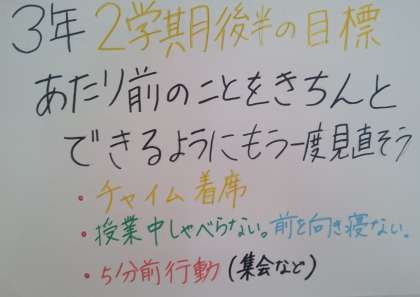 3年 2学期後半の目標
あたり前のことをきちんと
できるようにもう一度見直そう
・チャイム着席
・授業中しゃべらない。前を向き寝ない。
・5分前行動(集会など)